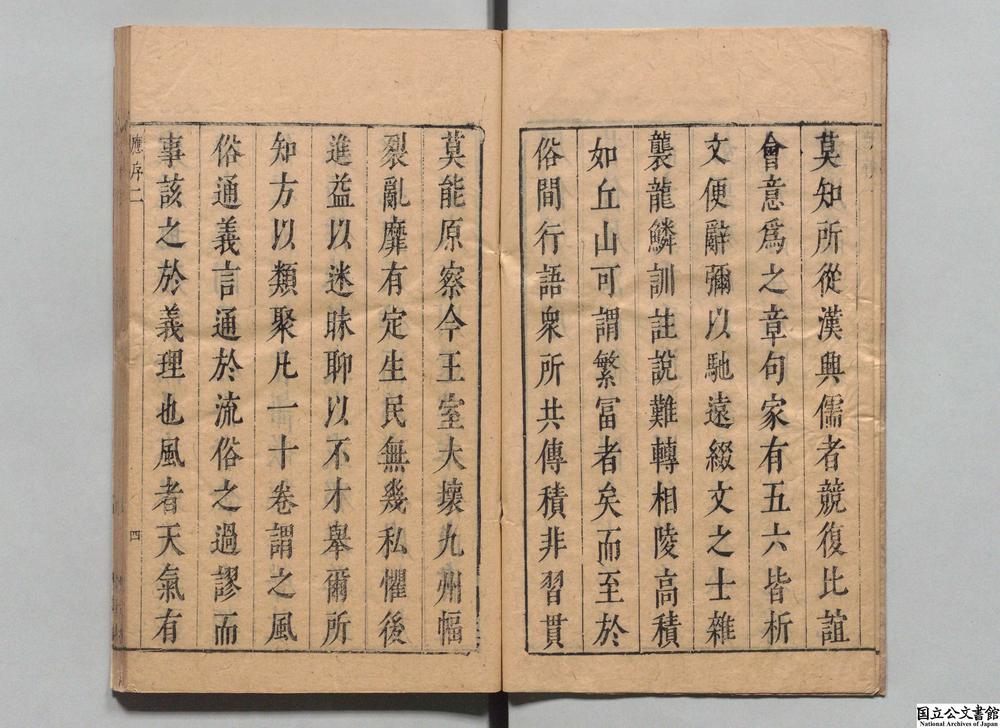 莫知所從漢興儒者競復比誼
會意爲之章句家有五六皆析
文便辭彌以馳遠綴文之士雜
襲龍鱗訓註說難轉相陵高積
如丘山可謂繁冨者矣而至於
俗間行語衆所共傳積非習貫
莫能原察今王室大壞九州幅
裂亂靡有定生民無幾私懼後
進益以迷昧聊以不才舉爾所
知方以類聚凡一十卷謂之風
俗通義言通於流俗之過謬而
事該之於義理也風者天氣有
應序二
四
国立公文書館
National Archives of Japan